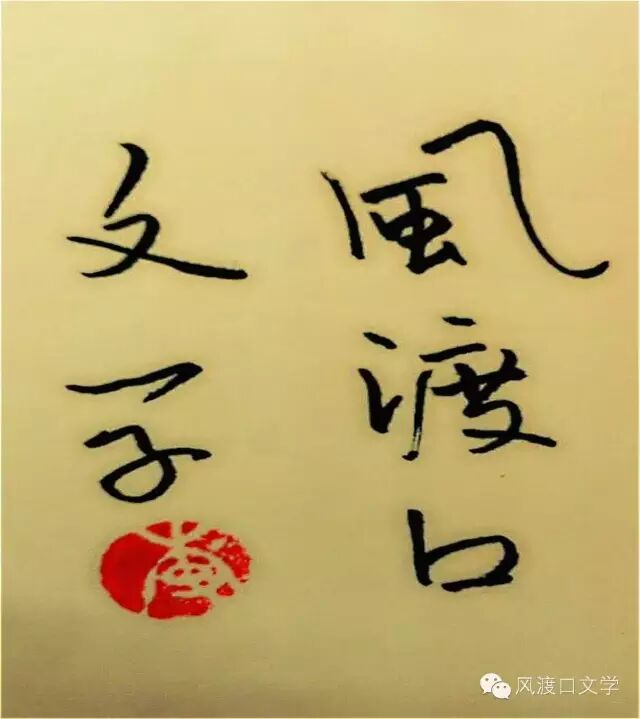 風渡口
文学
风渡口文学